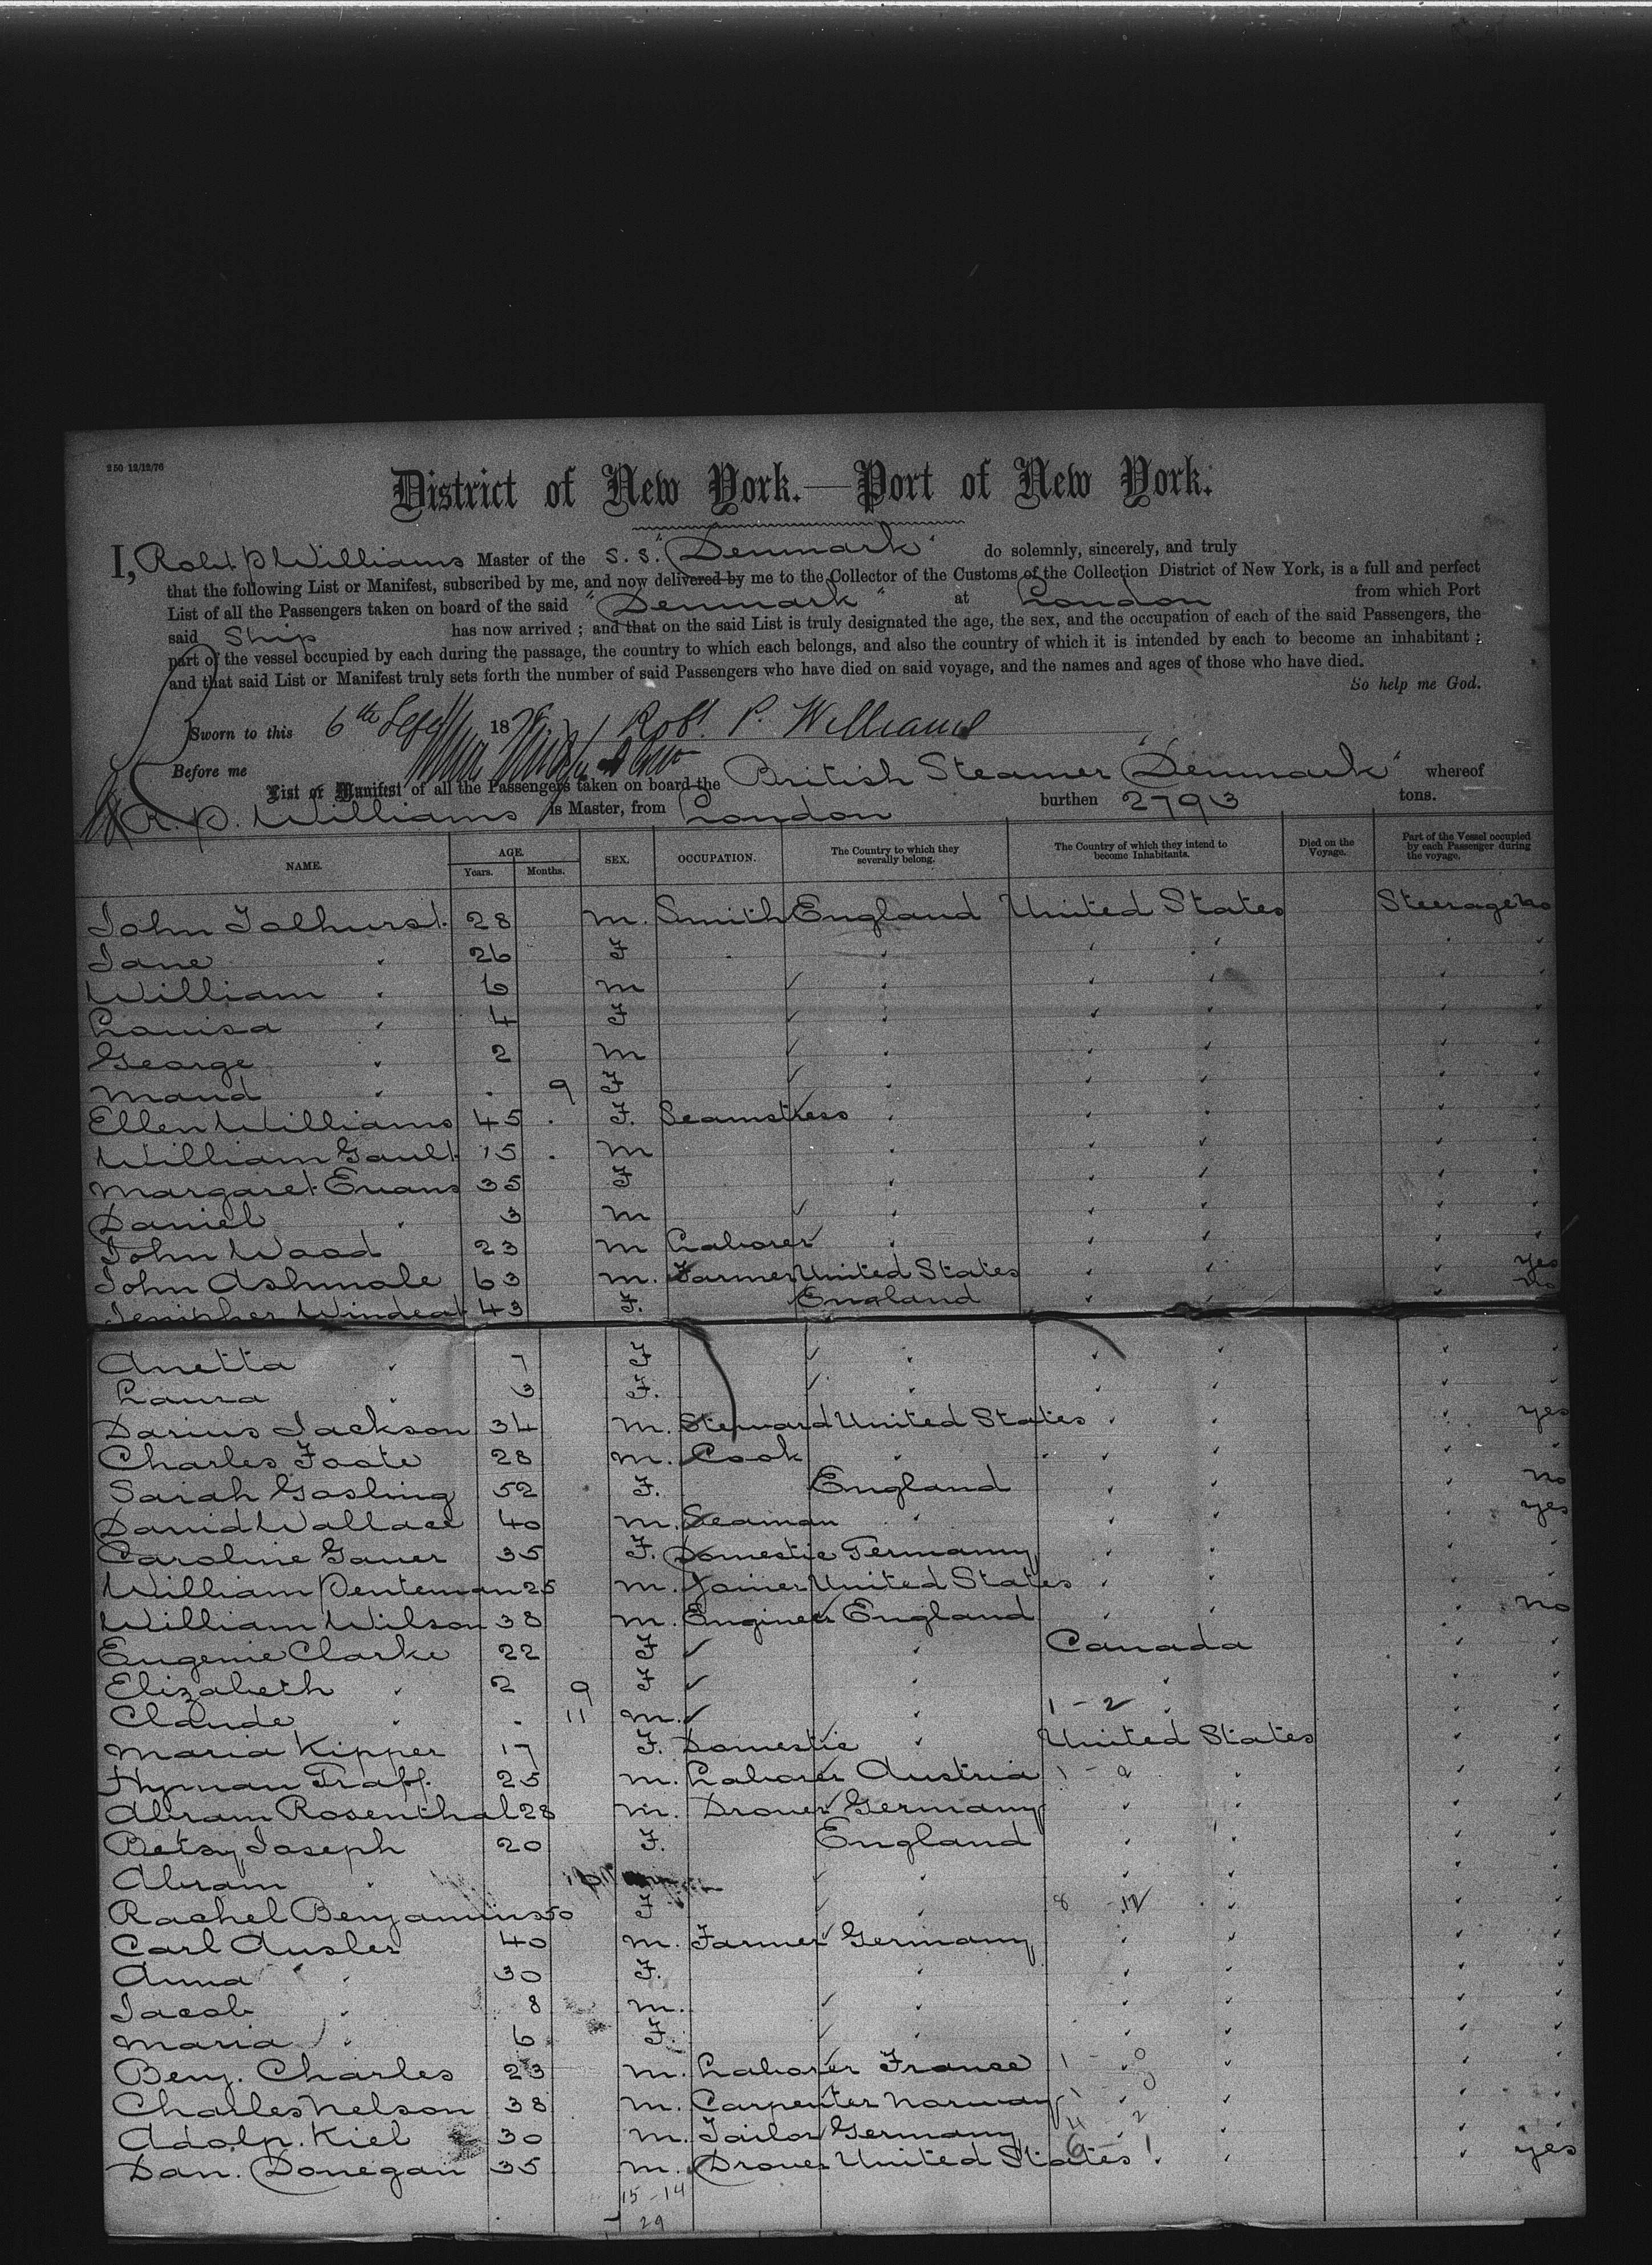 250 12/12/76
District of New York.—Port of New York.
I, Robt P Williams Master of the S. S. "Denmark" do solemnly, sincerely, and truly
that the following List or Manifest, subscribed by me, and now delivered by me to the Collector of the Customs of the Collection District of New York, is a full and perfect
List of all the Passengers taken on board of the said "Denmark" at London from which Port
said Ship has now arrived ; and that on the said List is truly designated the age, the sex, and the occupation of each of the said Passengers, the
part of the vessel occupied by each during the passage, the country to which each belongs, and also the country of which it is intended by each to become an inhabitant ;
and that said List or Manifest truly sets forth the number of said Passengers who have died on said voyage, and the names and ages of those who have died.
So help me God.
Sworn to this 6th Sept 187 Robt. P. Williams
Before me
List or Manifest of all the Passengers taken on board the British Steamer "Denmark" whereof
R. P. Williams is Master, from London burthen 2793 tons.
NAME. AGE. Years. Months. SEX. OCCUPATION. The Country to which they severally belong. The Country of which they intend to become Inhabitants. Died on the Voyage. Part of the Vessel occupied by each Passenger during the voyage.
John Tolhurst. 28 M. Smith England United States Steerage No
Jane " 26 F " " " " "
William " 6 M " " " " "
Louisa " 4 F " " " " "
George " 2 M " " " " "
Maud " . 9 F " " " " "
Ellen Williams 45 . F. Seamstress " " " " "
William Gault 15 . M " " " " "
Margaret Evans 35 F " " " " "
Daniel " 3 M " " " " "
John Wood 23 M Laborer " " " " "
John Ashmole 63 M. Farmer United States " " " yes
Jenipher Windeat 43 F. England " " " No
Anetta " 7 F " " " " "
Laura " 3 F. " " " " "
Darius Jackson 34 M. Steward United States " " " yes
Charles Foote 28 M. Cook " " " " "
Sarah Gosling 52 F. England " " " No
David Wallace 40 M. Seaman " " " " yes
Caroline Gauer 35 F. Domestic Germany " " " "
William Penteman 25 M. Joiner United States " " " "
William Wilson 38 M. Engineer England " " " No
Eugenie Clarke 22 F " Canada " "
Elizabeth " 2 9 F " " " "
Claude " . 11 M. " 1 - 2 " " "
Maria Kipper 17 F. Domestic " United States " "
Hyman Traff. 25 M. Laborer Austria 1 - 2 " " "
Abram Rosenthal 28 M. Drover Germany " " " "
Betsy Joseph 20 F. England " " " "
Abram " " " " " "
Rachel Benjamins 50 F " 8 - 12 " " "
Carl Ausler 40 M. Farmer Germany " " " "
Anna " 30 F. " " " " "
Jacob " 8 M. " " " " "
Maria " 6 F. " " " " "
Benj. Charles 23 M. Laborer France 1 - 0 " " " "
Charles Nelson 38 M. Carpenter Norway 1 " " " "
Adolp. Kiel 30 M. Tailor Germany " " " "
Dan. Donegan 35 M. Drover United States " " " yes
15 - 14
29